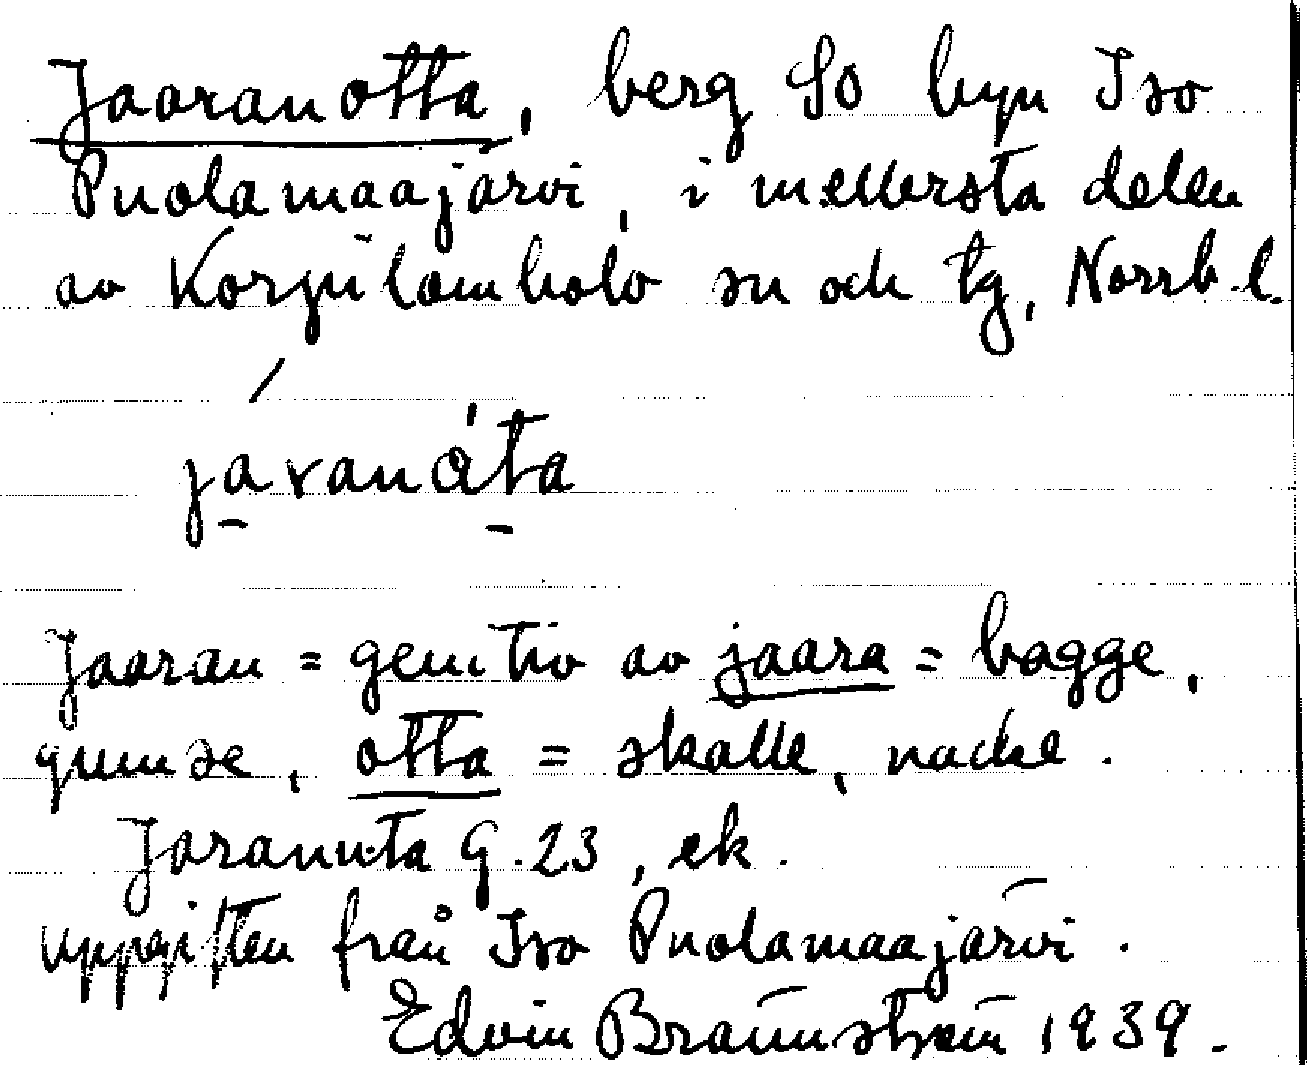 Jaaranotta, berg SO byn Iso
Puolamaajärvi, i mellersta delen
av Korpilombolo sn och tg, Norrb. l.
Jaaran = genitiv av jaara = bagge,
gumse, otta = skalle, nacke.
G. 23, ek.
uppgiften från Iso Puolamaajärvi.
Edvin Brännström 1939.